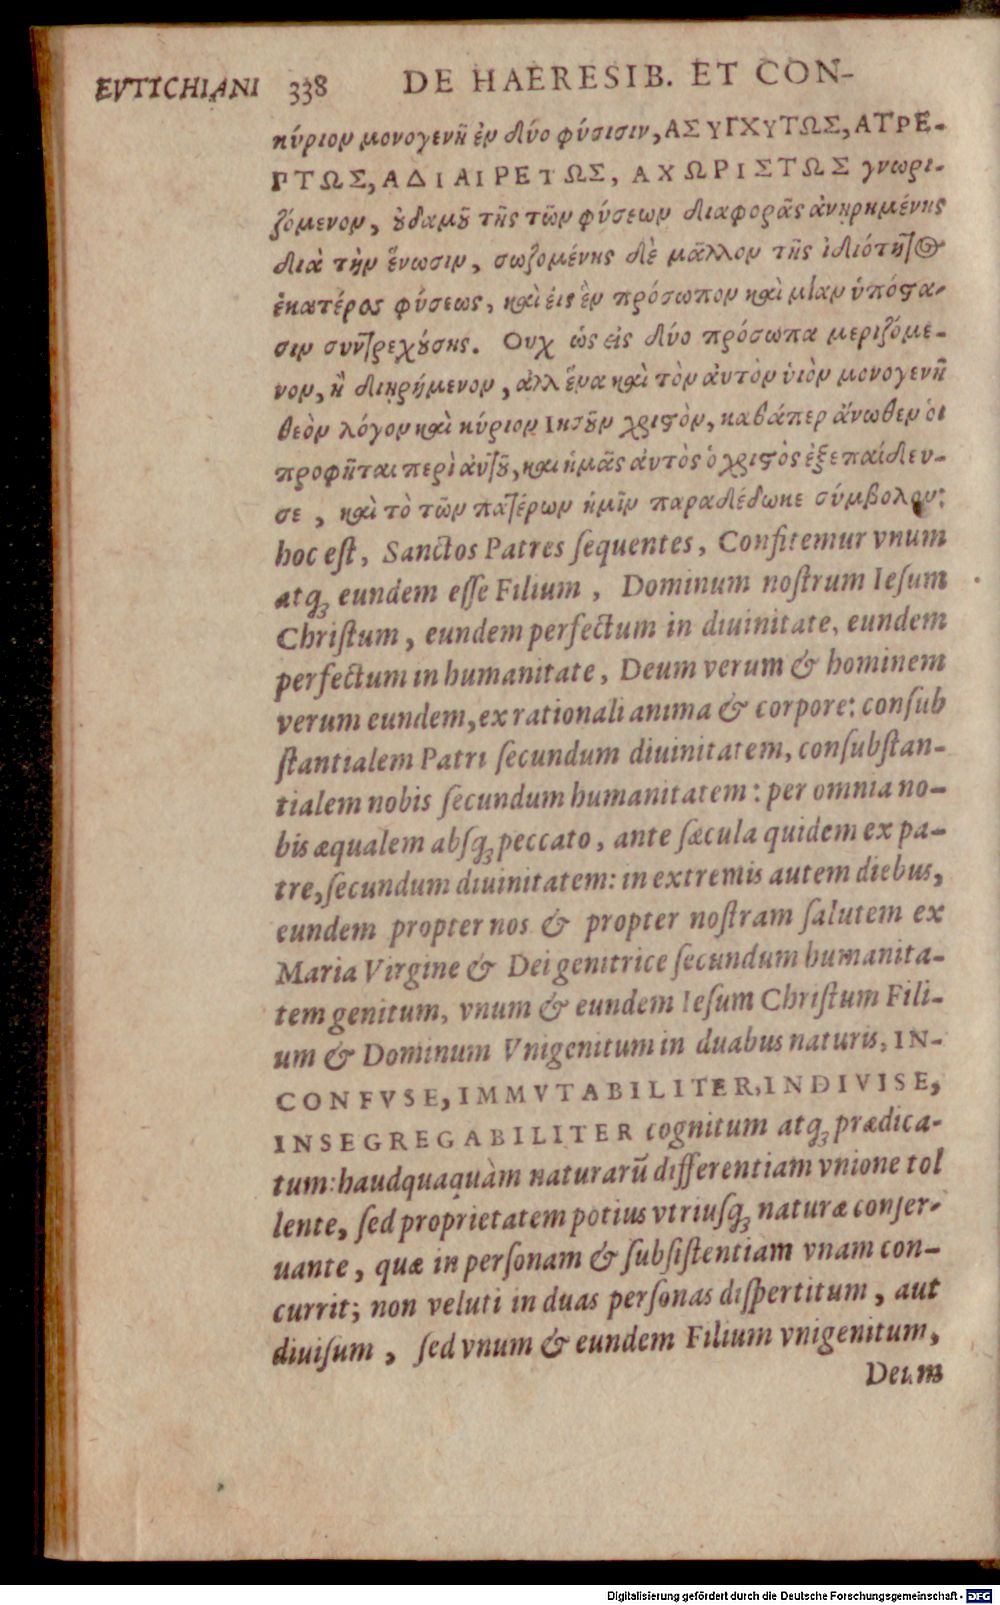 EVTICHIANI 338 DE HAERESIB. ET CON-
κύριον μονογενῆ ἐν δύο φύσισιν, ΑΣΥΓΧΥΤΩΣ, ΑΤΡΕ-
ΠΤΩΣ, ΑΔΙΑΙΡΕΤΩΣ, ΑΧΩΡΙΣΤΩΣ γνωρι-
ζόμενον, ȣ̓δαμȣ͂ τῆς τῶν φύσεων διαφορᾶς ἀνῃρημένης
διὰ τὴν ἕνωσιν, σωζομένης δὲ μᾶλλον τῆς ἰδιότητος
ἑκατέρας φύσεως, καὶ εἰς ἓν πρόσωπον καὶ μίαν ὑπόϛα-
σιν συντρεχȣ́σης. Ουχ ὡς εἰς δύο πρόσωπα μεριζόμε-
νον, ἢ διῃρήμενον, ἀλλ ἕνα καὶ τὸν ἀυτὸν ὑιὸν μονογενῆ
θεὸν λόγον καὶ κύριον Ιησȣ͂ν χριϛὸν, καθάπερ ἄνωθεν ὁι
προφῆται περὶ ἀυτȣ͂, και ἡμᾶς ἀυτὸς ὁ χριϛὸς ἐξεπαίδευ-
σε, καὶ τὸ τῶν πατέρων ἡμῖν παραδέδωκε σύμβολον:
hoc eſt, Sanctos Patres ſequentes, Confitemur vnum
atq; eundem eſſe Filium, Dominum noſtrum Ieſum
Chriſtum, eundem perfectum in diuinitate, eundem
perfectum in humanitate, Deum verum & hominem
verum eundem, ex rationali anima & corpore: conſub
ſtantialem Patri ſecundum diuinitatem, conſubſtan-
tialem nobis ſecundum humanitatem: per omnia no-
bis æqualem abſq; peccato, ante ſæcula quidem ex pa-
tre, ſecundum diuinitatem: in extremis autem diebus,
eundem propter nos & propter noſtram ſalutem ex
Maria Virgine & Dei genitrice ſecundum humanita-
tem genitum, vnum & eundem Ieſum Chriſtum Fili-
um & Dominum Vnigenitum in duabus naturis, IN-
CONFVSE, IMMVTABILITER, INDIVISE,
INSEGREGABILITER cognitum atq; prædica-
tum: haudquaquàm naturarū differentiam vnione tol
lente, ſed proprietatem potius vtriuſq; naturæ conſer-
uante, quæ in perſonam & ſubſiſtentiam vnam con-
currit; non veluti in duas perſonas diſpertitum, aut
diuiſum, ſed vnum & eundem Filium vnigenitum,
Deum
Digitalisierung gefördert durch die Deutsche Forschungsgemeinschaft - DFG